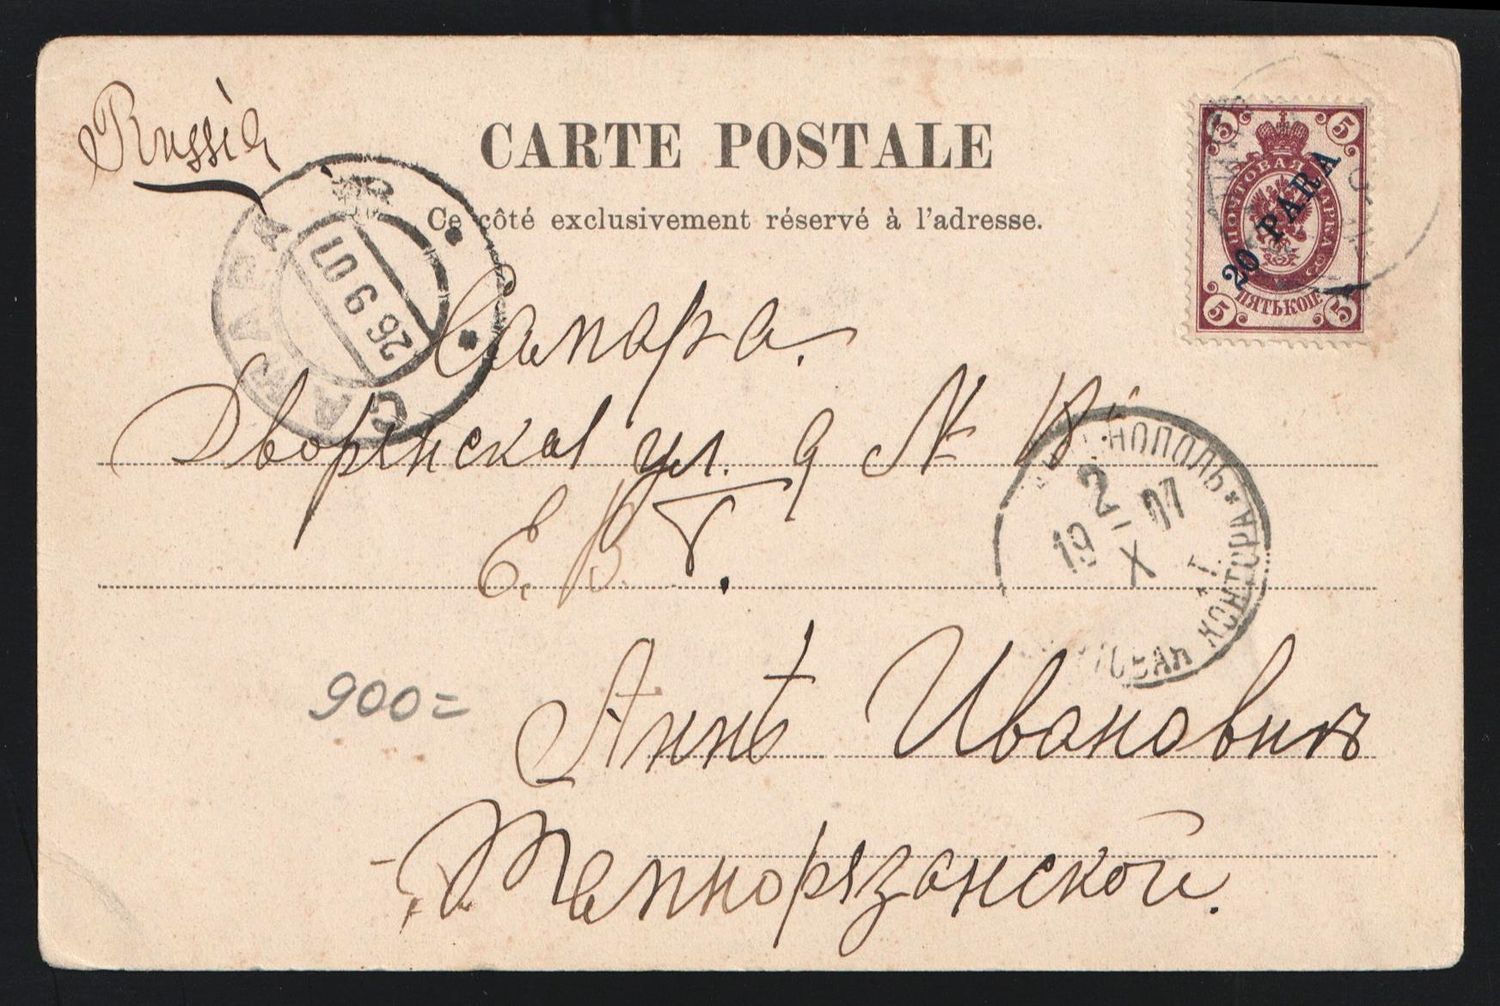 Russia
CARTE POSTALE
Ce côté exclusivement réservé à l'adresse.
5 5
ПОЧТОВАЯ МАРКА
20 PARA
ПЯТЬ КОП
5 5
САМАРА
26 9 07
Самара.
Дворянская ул. д №
Е. В. Г.
НОПОЛЬ
2
19 X 07
КОНТОРА
Аннѣ Ивановнѣ
900=